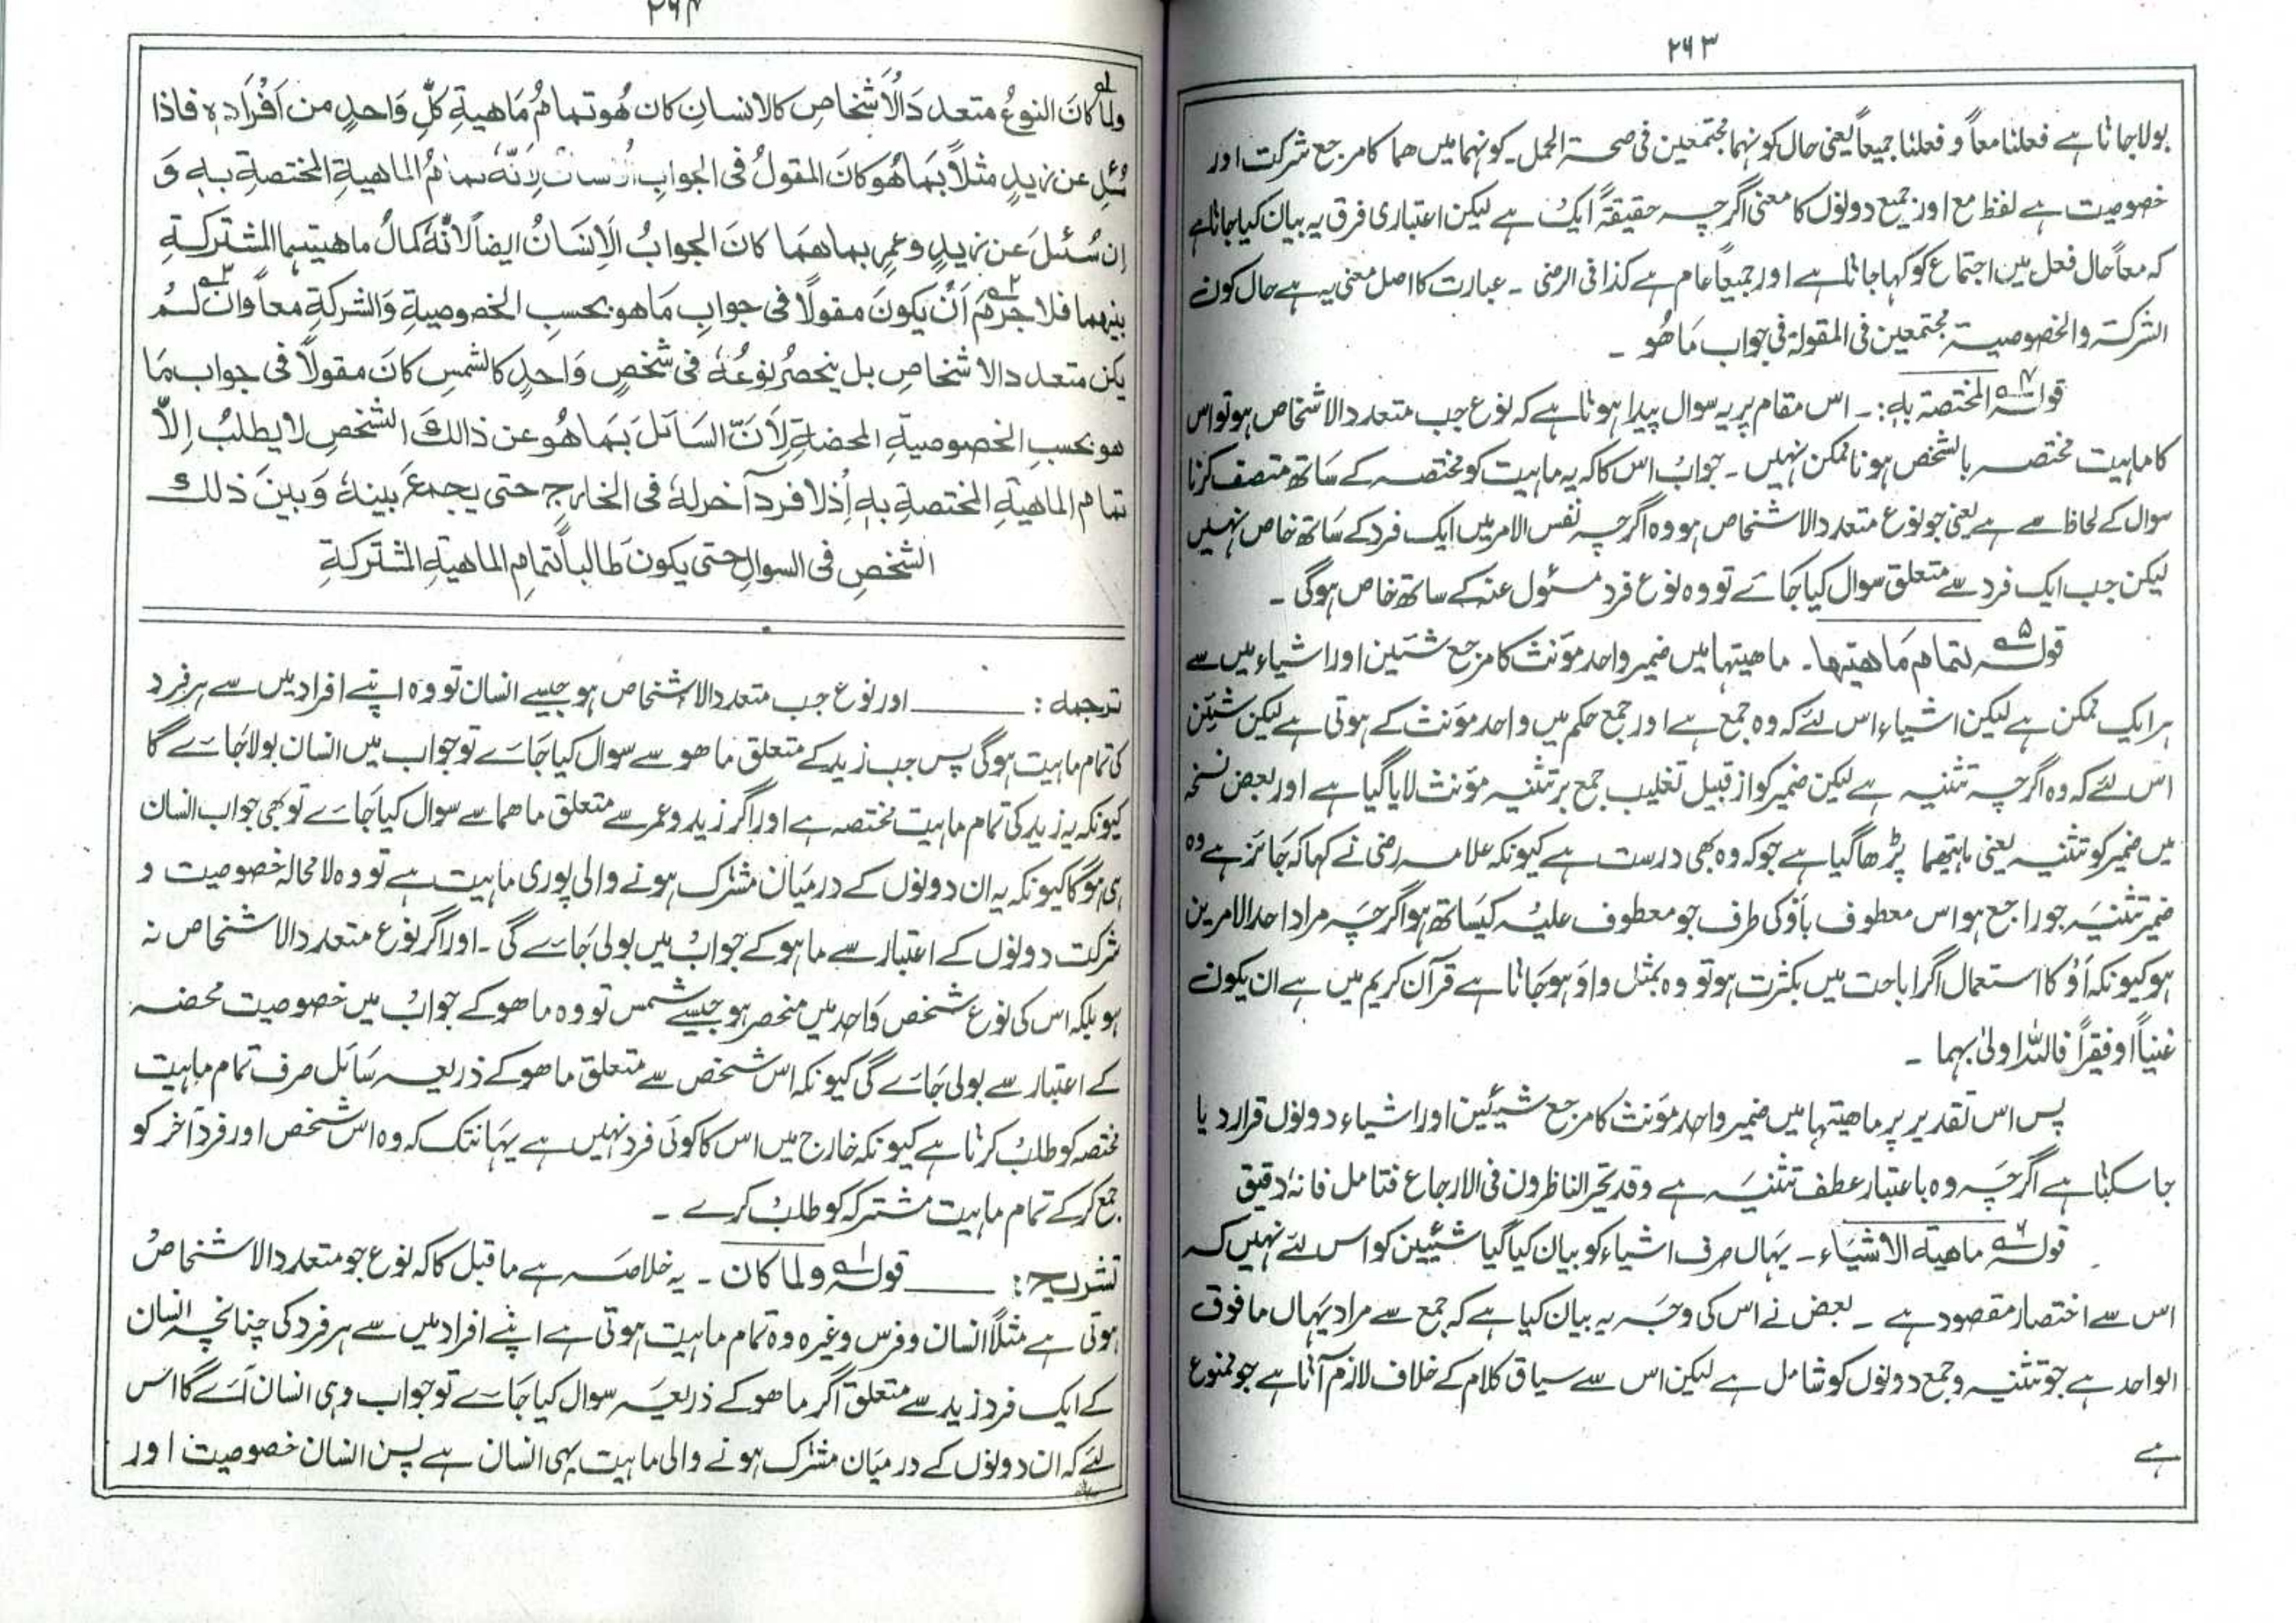 ۲۶۳
بولا جاتا ہے فعلنا معاً و فعلنا جمیعاً یعنی حال کونہما مجتمعین فی صحۃ الحمل۔ کونہما میں ھما کا مرجع شرکت اور
خصوصیت ہے لفظ مع اور جمیع دونوں کا معنی اگرچہ حقیقۃً ایک ہے لیکن اعتباری فرق یہ بیان کیا جاتا ہے
کہ معاً حال فعل میں اجتماع کو کہا جاتا ہے اور جمیعاً عام ہے کذا فی الرضی ۔ عبارت کا اصل معنی یہ ہے حال کون
الشرکۃ والخصوصیۃ مجتمعین فی المقولۃ فی جواب مَا ھُو ۔
قولہ ۴ المختصۃ بہٖ:۔ اس مقام پر یہ سوال پیدا ہوتا ہے کہ نوع جب متعدد الاشخاص ہو تو اس
کا ماہیت مختصہ بالشخص ہونا ممکن نہیں ۔ جواب اس کا کہ یہ ماہیت کو مختصہ کے ساتھ متصف کرنا
سوال کے لحاظ سے ہے یعنی جو نوع متعدد الاشخاص ہو وہ اگرچہ نفس الامر میں ایک فرد کے ساتھ خاص نہیں
لیکن جب ایک فرد سے متعلق سوال کیا جائے تو وہ نوع فرد مسئول عنہ کے ساتھ خاص ہوگی ۔
قولہ ۵ لتمام مَاھیتھا۔ ماھیتھا میں ضمیر واحد مؤنث کا مرجع شیئین اور اشیاء میں سے
ہر ایک ممکن ہے لیکن اشیاء اس لئے کہ وہ جمع ہے اور جمع حکم میں واحد مؤنث کے ہوتی ہے لیکن شیئین
اس لئے کہ وہ اگرچہ تثنیہ ہے لیکن ضمیر کو از قبیل تغلیب جمع بر تثنیہ مؤنث لایا گیا ہے اور بعض نسخہ
میں ضمیر کو تثنیہ یعنی ماہیتھما پڑھا گیا ہے جو کہ وہ بھی درست ہے کیونکہ علامہ رضی نے کہا کہ جائز ہے وہ
ضمیر تثنیہ جو راجع ہو اس معطوف باَوْ کی طرف جو معطوف علیہ کیساتھ ہو اگرچہ مراد احد الامرین
ہو کیونکہ اَوْ کا استعمال اگر اباحت میں بکثرت ہو تو وہ بمثل واو ہو جاتا ہے قرآن کریم میں ہے ان یکون
غنیاً او فقیراً فاللہ اولیٰ بہما ۔
پس اس تقدیر پر ماھیتھا میں ضمیر واحد مؤنث کا مرجع شیئین اور اشیاء دونوں قرار دیا
جا سکتا ہے اگرچہ وہ باعتبار عطف تثنیہ ہے وقد تحیر الناظرون فی الارجاع فتامل فانہ دقیق
قولہ ۶ ماھیۃ الاشیاء ۔ یہاں صرف اشیاء کو بیان کیا گیا شیئین کو اس لئے نہیں کہ
اس سے اختصار مقصود ہے ۔ بعض نے اس کی وجہ یہ بیان کیا ہے کہ جمع سے مراد یہاں مافوق
الواحد ہے جو تثنیہ و جمع دونوں کو شامل ہے لیکن اس سے سیاق کلام کے خلاف لازم آتا ہے جو ممنوع
ہے
۲۶۴
ولما ۱ کانَ النوعُ متعددَالاَشخاصِ کالانسانِ کان ھُو تمامُ مَاھیةِ کلِّ وَاحدٍ من اَفْرَادِہٖ فاذا
سُئِلَ عن زیدٍ مثلاً بمَا ھُو کانَ المقولُ فی الجوابِ الانسانَ لِاَنَّہٗ تمامُ الماھیةِ المختصةِ بہٖ وَ
اِن سُئلَ عن زیدٍ وعمرٍ بماھمَا کانَ الجوابُ الاِنسَانُ ایضاً لانّہٗ کمالُ ماھیتِہما المشترکةِ
بینھما فلا جرمَ ۲ اَنْ یکونَ مقولًا فی جوابِ مَا ھو بحسبِ الخصوصیةِ وَالشرکةِ معاً وان ۳ لمْ
یکن متعددالاشخاصِ بل ینحصرُ نوعُہٗ فی شخصٍ وَاحدٍ کالشمسِ کانَ مقولاً فی جواب مَا
ھو بحسبِ الخصوصیةِ المحضةِ لِاَنَّ السَائلَ بمَا ھُو عن ذالکَ الشخصِ لا یطلبُ اِلاَّ
تمام الماھیةِ المختصةِ بہٖ اِذ لا فردَ آخرَ لہٗ فی الخارجِ حتی یجمعَ بینہٗ وَبینَ ذلک
الشخصِ فی السوالِ حتی یکونَ طالباً لتمامِ الماھیةِ المشترکةِ
ترجمہ : ــــــــ اور نوع جب متعدد الاشخاص ہو جیسے انسان تو وہ اپنے افراد میں سے ہر فرد
کی تمام ماہیت ہوگی پس جب زید کے متعلق ماھو سے سوال کیا جائے تو جواب میں انسان بولا جائے گا
کیونکہ یہ زید کی تمام ماہیت مختصہ ہے اور اگر زید و عمر سے متعلق ماھما سے سوال کیا جائے تو بھی جواب انسان
ہی ہوگا کیونکہ یہ ان دونوں کے درمیان مشترک ہونے والی پوری ماہیت ہے تو وہ لا محالہ خصوصیت و
شرکت دونوں کے اعتبار سے ماہو کے جواب میں بولی جائے گی ۔ اور اگر نوع متعدد الاشخاص نہ
ہو بلکہ اس کی نوع شخص واحد میں منحصر ہو جیسے شمس تو وہ ماھو کے جواب میں خصوصیت محضہ
کے اعتبار سے بولی جائے گی کیونکہ اس شخص سے متعلق ماھو کے ذریعہ سائل صرف تمام ماہیت
مختصہ کو طلب کرتا ہے کیونکہ خارج میں اس کا کوئی فرد نہیں ہے یہانتک کہ وہ اس شخص اور فرد آخر کو
جمع کرکے تمام ماہیت مشترکہ کو طلب کرے ۔
تشریح : ــــــــ قولہ ۱ ولما کان ۔ یہ خلاصہ ہے ماقبل کا کہ نوع جو متعدد الاشخاص
ہوتی ہے مثلاً انسان و فرس وغیرہ وہ تمام ماہیت ہوتی ہے اپنے افراد میں سے ہر فرد کی چنانچہ انسان
کے ایک فرد زید سے متعلق اگر ماھو کے ذریعہ سوال کیا جائے تو جواب وہی انسان آئے گا اس
لئے کہ ان دونوں کے درمیان مشترک ہونے والی ماہیت یہی انسان ہے پس انسان خصوصیت اور